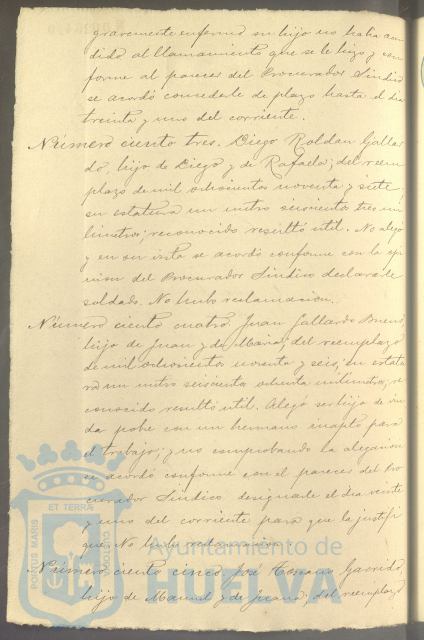 gravemente enfermo su hijo no habia acu
dido al llamamiento que se le hizo y con
forme al parecer del Procurador Sindico
se acordó concederle de plazo hasta el dia
treinta y uno del corriente.
Número ciento tres. Diego Roldan Galla
do, hijo de Diego y de Rafaela; del reem
plazo de mil ochocientos noventa y siete,
su estatura un metro seiscientos tres mi
limetros; reconocido resultó util. No alegó
y en su vista se acordó conforme con la opi
nion del Procurador Sindico declararle
soldado. No hubo reclamacion.
Número ciento cuatro. Juan Gallardo Bueno,
hijo de Juan y de Maria; del reemplazo
de mil ochocientos noventa y seis, su estatu
ra un metro seiscientos ochenta milimetros, re
conocido resultó util. Alegó ser hijo de viu
da pobre con un hermano inapto para
el trabajo; y no comprobando la alegacion
se acordó conforme con el parecer del Pro
curador Sindico designarle el dia veinte
y uno del corriente para que la justifi
que. No hubo reclamacion.
Número ciento cinco. José Garrido,
hijo de Manuel y de Juana; del reemplazo
PORTUS MARIS ET TERRÆ CUSTODIA
Ayuntamiento de
HUELVA